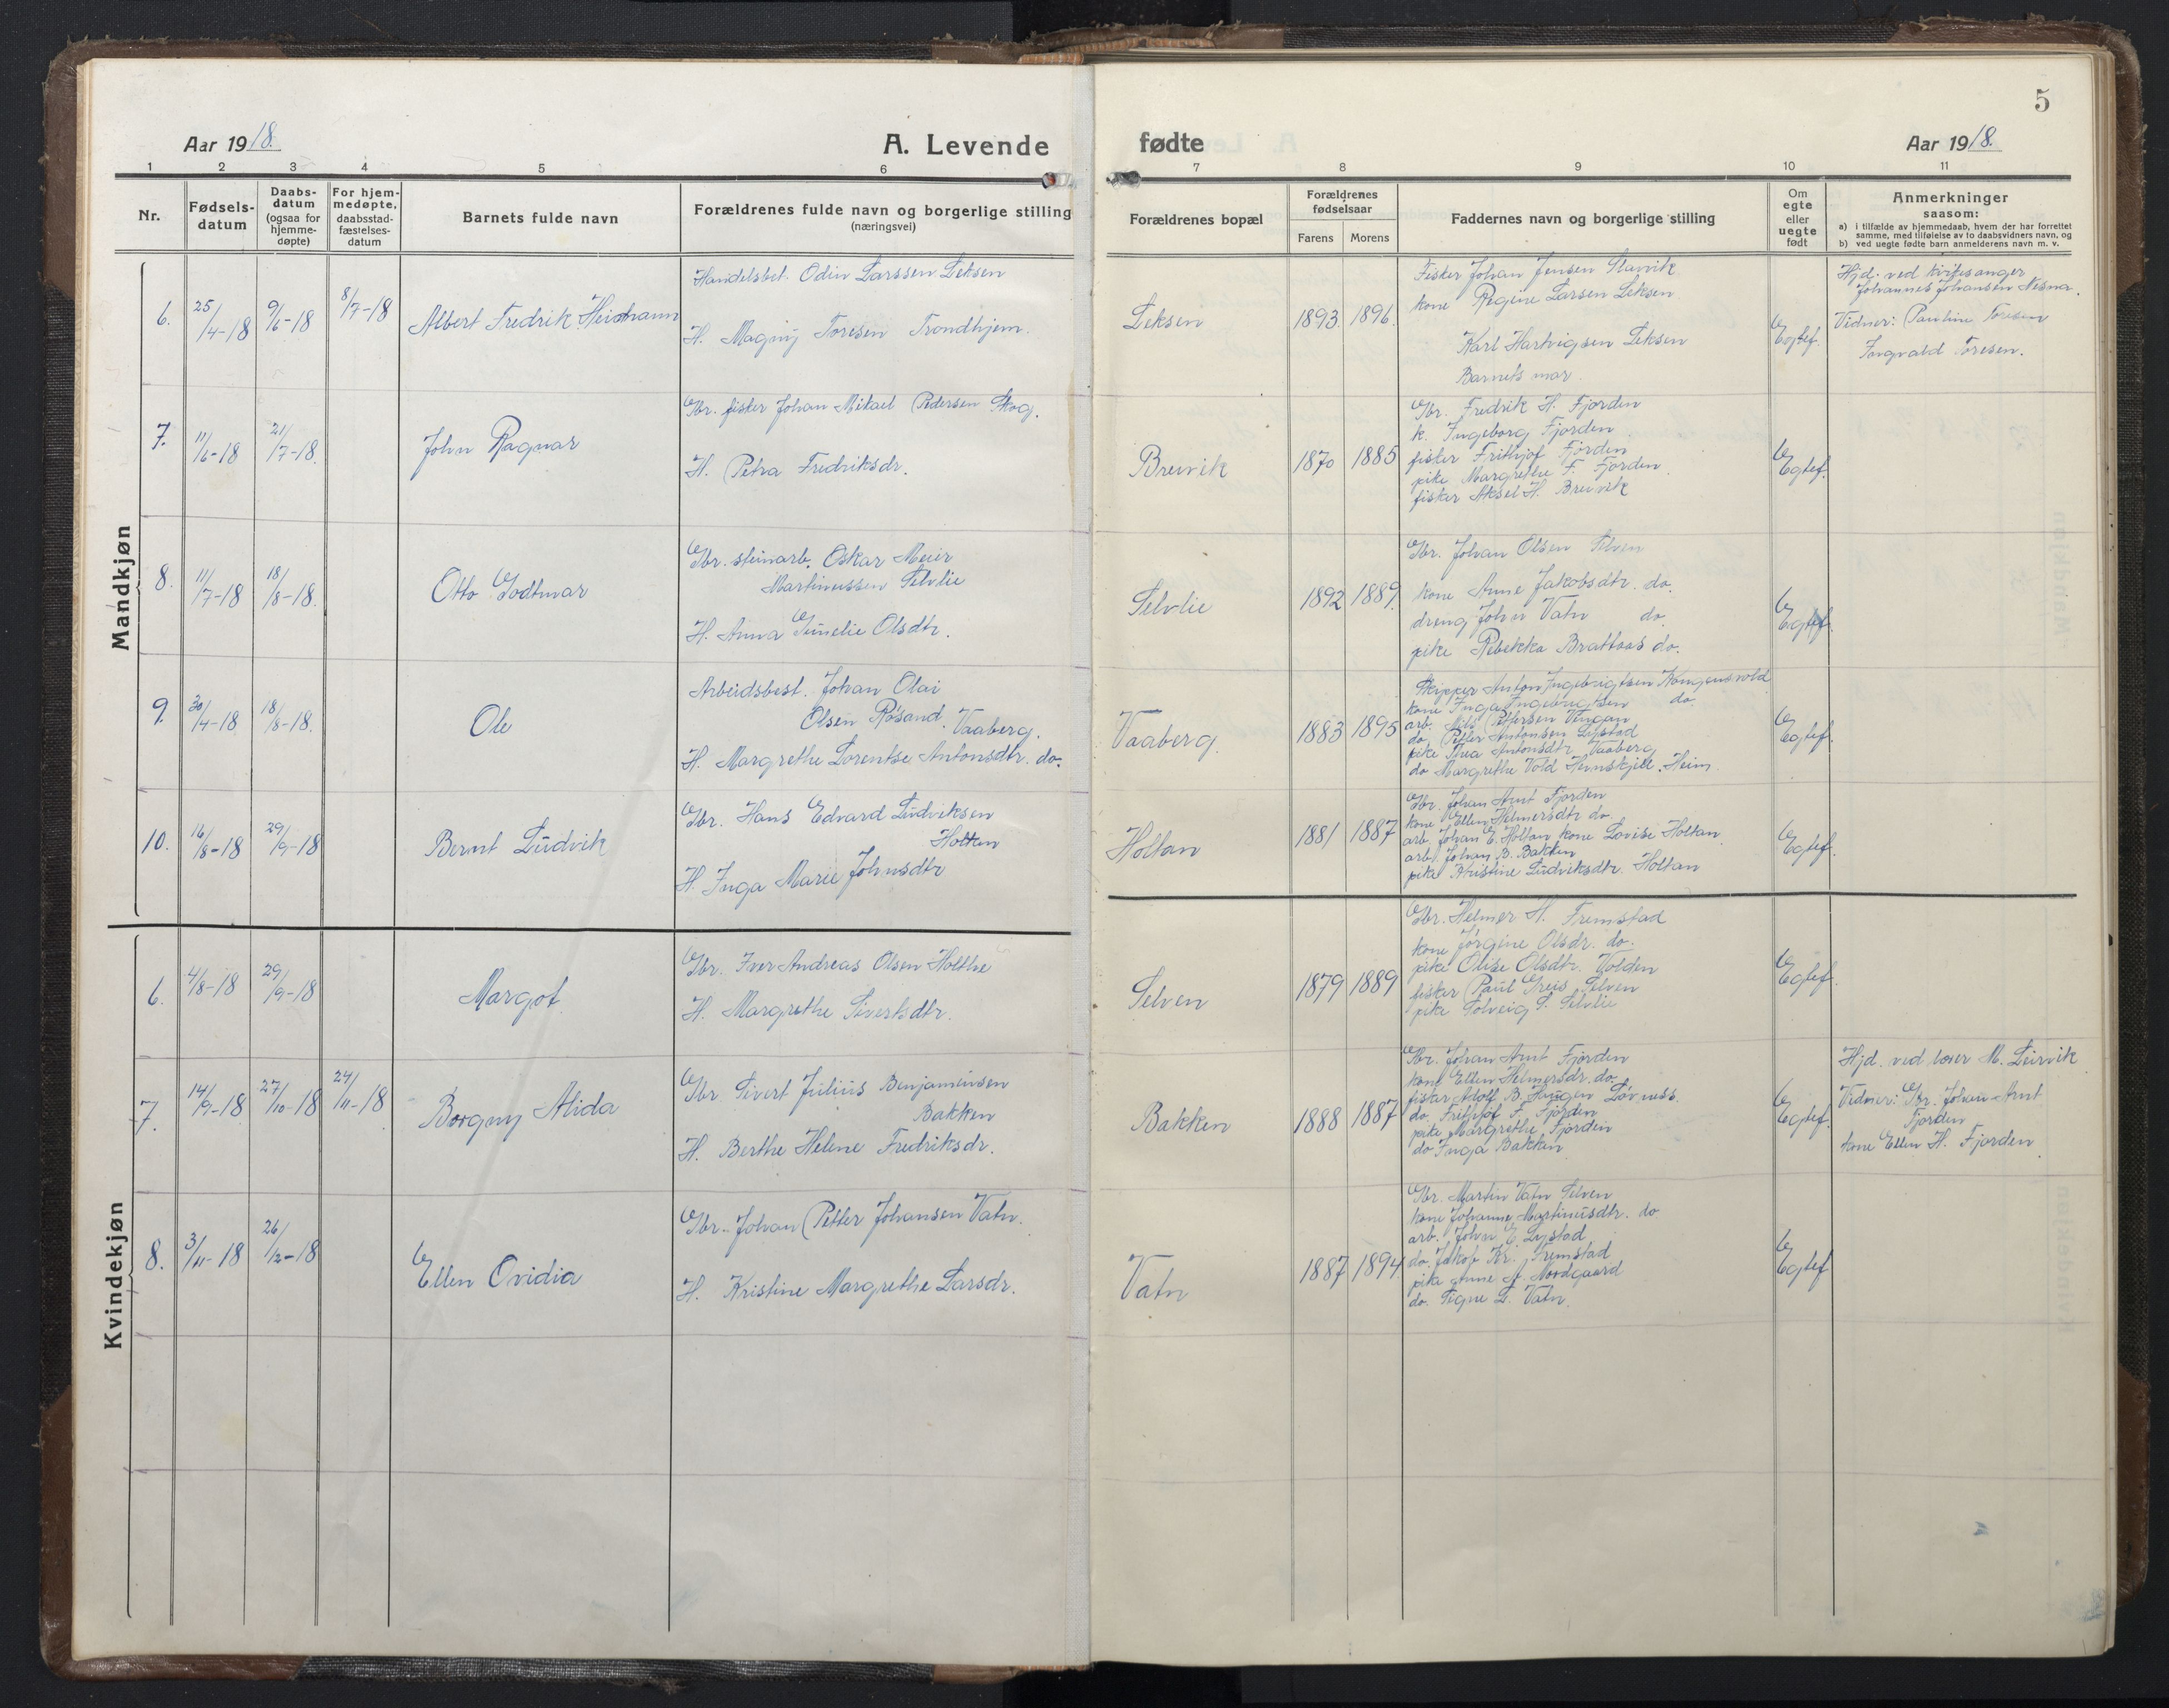 5
Aar 1918.
A. Levende
fødte
Aar 1918.
1 2 3 4 5 6 7 8 9 10 11
Nr.
Fødsels-
datum
Daabs-
datum
(ogsaa for
hjemme-
døpte)
For hjem-
medøpte,
daabsstad-
fæstelses-
datum
Barnets fulde navn
Forældrenes fulde navn og borgerlige stilling
(næringsvei)
Forældrenes bopæl
Forældrenes
fødselsaar
Farens Morens
Faddernes navn og borgerlige stilling
Om
egte
eller
uegte
født
Anmerkninger
saasom:
a) i tilfælde av hjemmedaab, hvem der har forrettet
samme, med tilføielse av to daabsvidners navn, og
b) ved uegte fødte barn anmelderens navn m. v.
Mandkjøn
6. 25/4-18 9/6-18 8/7-18
Albert Fredrik
Handelsbet. Odin Larssen Leksen
H. Magny Toresen Trondhjem.
Leksen
1893. 1896.
Fisker Johan Jensen Slavvik
kone Regine Larsen Leksen
Karl Hartvigsen Leksen
Barnets mor.
Egtef.
Hjd. ved
Johannes Johansen Nesna.
Vidner: Pauline Toresen
Ingvald Toresen.
7. 11/6-18 21/7-18.
John Ragnar
Gbr. fisker Johan Mikael Pedersen Skog.
H. Petra Fredriksdr.
Breivik
1870 1885
Gbr. Fredrik H. Fjorden
k. Ingeborg Fjorden
fisker Frithjof Fjorden
pike Margrethe F. Fjorden.
fisker Aksel H. Breivik
Egtef.
8. 11/7-18 18/8-18.
Otto Godtmar
Gbr. steinarb. Oskar Meier
Martinussen Selvlie
H. Anna Gunelie Olsdtr.
Selvlie
1892 1889.
Gbr. Johan Olsen Selven
kone Anne Jakobsdtr. do.
dreng John Vatn do.
pike Rebekka Brattaas do.
Egtef.
9. 30/4-18 18/8-18.
Ole
Arbeidsbest. Johan Olai
Olsen Røsand. Vaaberg.
H. Margrethe Lorentse Antonsdtr. do.
Vaaberg.
1883 1895
Skipper Anton Ingebrigtsen Kongensvold
kone Inga Ingebrigtsen do.
arb. Nils Pettersen Vengan
do. Petter Antonsen Lystad
pike Thea Antonsdtr. Vaaberg
do Margrethe Vold Hemskjell. Heim.
Egtef.
10. 16/8-18 29/9-18
Bernt Ludvik
Gbr. Hans Edvard Ludviksen
Holtan
H. Inga Marie Johnsdtr
Holtan
1881 1887
Gbr. Johan Arnt Fjorden
kone Ellen Helmersdtr do.
arb. Johan E. Holtan kone Lovise Holtan.
arb. Johan B. Bakken
pike Kristine Ludviksdtr. Holtan
Egtef.
Kvindekjøn
6. 4/8-18 29/9-18
Margot.
Gbr. Iver Andreas Olsen Holthe
H. Margrethe Sivertsdtr.
Selven
1879 1889
Gbr. Helmer H. Fremstad
kone Jørgine Olsdr. do.
pike Olise Olsdtr. Volden
fisker Paul Greis Selven
pike Solveig S. Selvlie
Egtef.
7. 14/9-18 27/10-18 24/11-18
Borgny Alida
Gbr. Sivert Julius Benjaminsen
Bakken
H. Berthe Helene Fredriksdr.
Bakken
1888 1887
Gbr. Johan Arnt Fjorden
kone Ellen Helmersdr. do.
fisker Adolf B. Haugen Løvness.
do. Frithjof F. Fjorden
pike Margrethe Fjorden
do Inga Bakken
Egtef.
Hjd. ved lærer M. Leirvik
Vidner: Gbr. Johan Arnt
Fjorden
kone Ellen H. Fjorden
8. 3/11-18 26/12-18
Ellen Ovidia
Gbr. Johan Petter Johansen Vatn.
H. Kristine Margrethe Larsdr.
Vatn
1887 1894.
Gbr. Martin Vatn Selven
kone Johanne Martinusdtr. do
arb. John E. Lystad
do. Jakob Kr. Fremstad
pike Anne A. Nordgaard
do. Signe L. Vatn.
Egtef